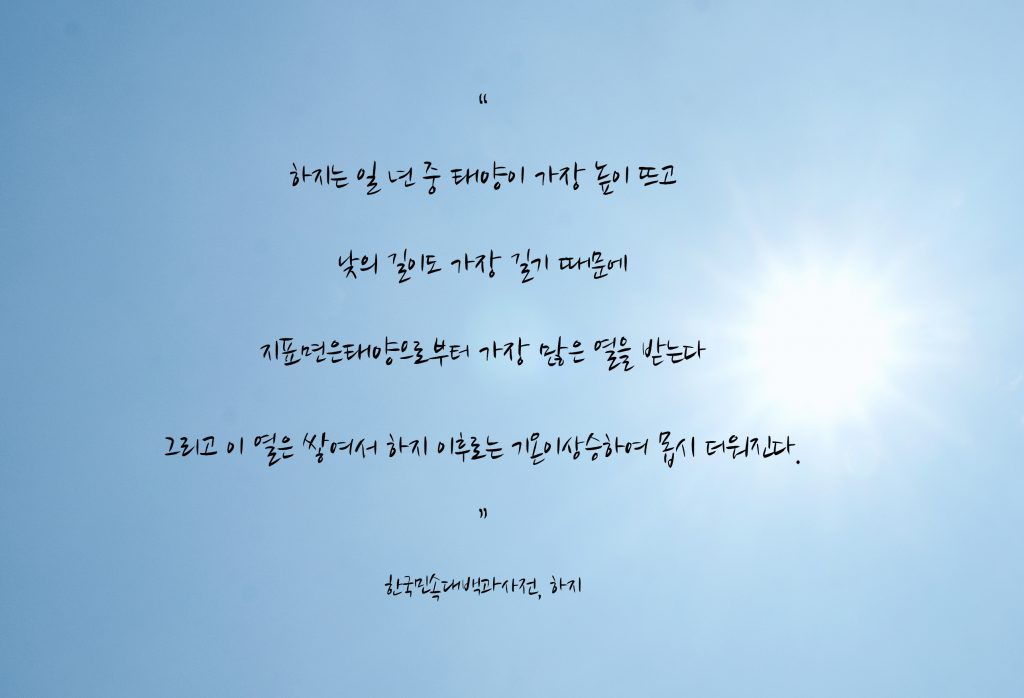 “
하지는 일 년 중 태양이 가장 높이 뜨고
낮의 길이도 가장 길기 때문에
지표면은태양으로부터 가장 많은 열을 받는다
그리고 이 열은 쌓여서 하지 이후로는 기온이상승하여 몹시 더워진다.
”
한국민속대백과사전, 하지